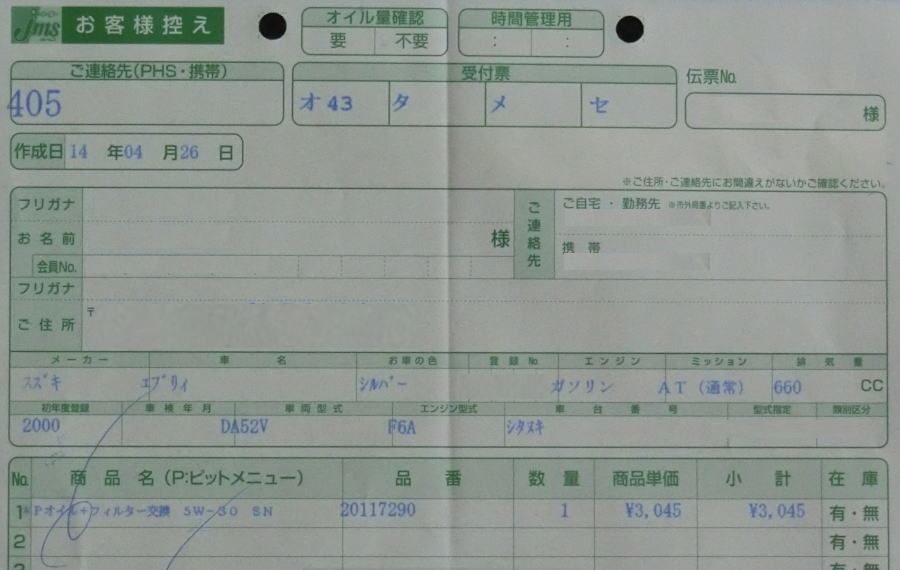 jms お客様控え
オイル量確認 時間管理用
要 不要 : :
ご連絡先(PHS・携帯) 受付票 伝票No.
405 オ 43 タ メ セ 様
作成日 14 年 04 月 26 日
※ご住所・ご連絡先にお間違えがないかご確認ください。
フリガナ ご連絡先 ご自宅・勤務先 ※市外局番よりご記入下さい。
お名前 様 携帯
会員No.
フリガナ
ご住所 〒
メーカー 車名 お車の色 登録No エンジン ミッション 排気量
スズキ エブリィ シルバー ガソリン AT (通常) 660 CC
初年度登録 車検年月 車両型式 エンジン型式 車台番号 型式指定 類別区分
2000 DA52V F6A シタヌキ
No. 商品名(P:ピットメニュー) 品番 数量 商品単価 小計 在庫
1 Pオイル+フィルター交換 5W-30 SN 20117290 1 ¥3,045 ¥3,045 有・無
2 有・無